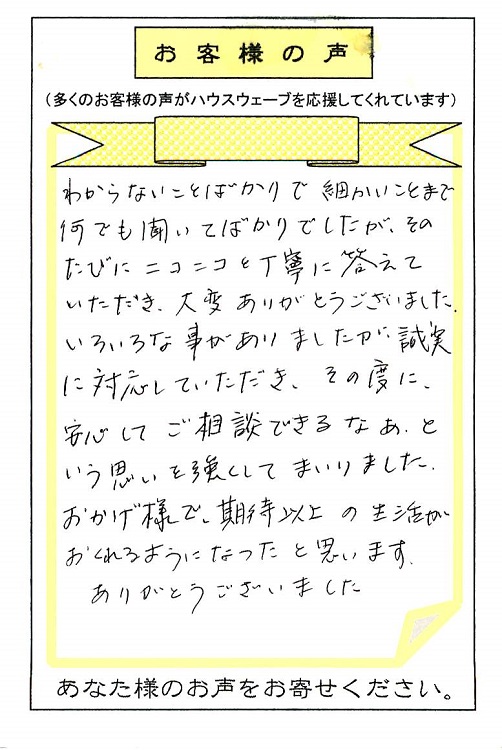 お客様の声
（多くのお客様の声がハウスウェーブを応援してくれています）
わからないことばかりで 細かいことまで
何でも聞いてばかりでしたが、その
たびにニコニコと丁寧に答えて
いただき、大変ありがとうございました。
いろいろな事がありましたが、誠実
に対応していただき、その度に、
安心して ご相談できるなぁ、と
いう思いを強くしてまいりました。
おかげ様で、期待以上の生活が
おくれるようになったと思います。
ありがとうございました
あなた様のお声をお寄せください。